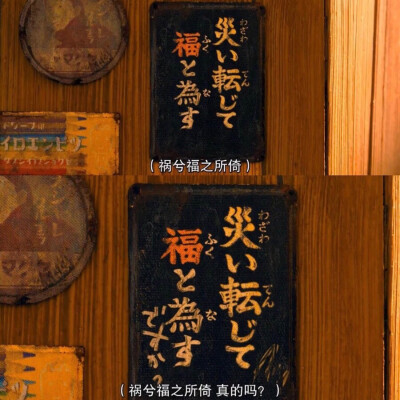 イロエンピツ
わざわ でん
災い転じて
ふく な
福と為す
（祸兮福之所倚）
わざわ でん
災い転じて
ふく な
福と為す
ですか?
（祸兮福之所倚 真的吗？）